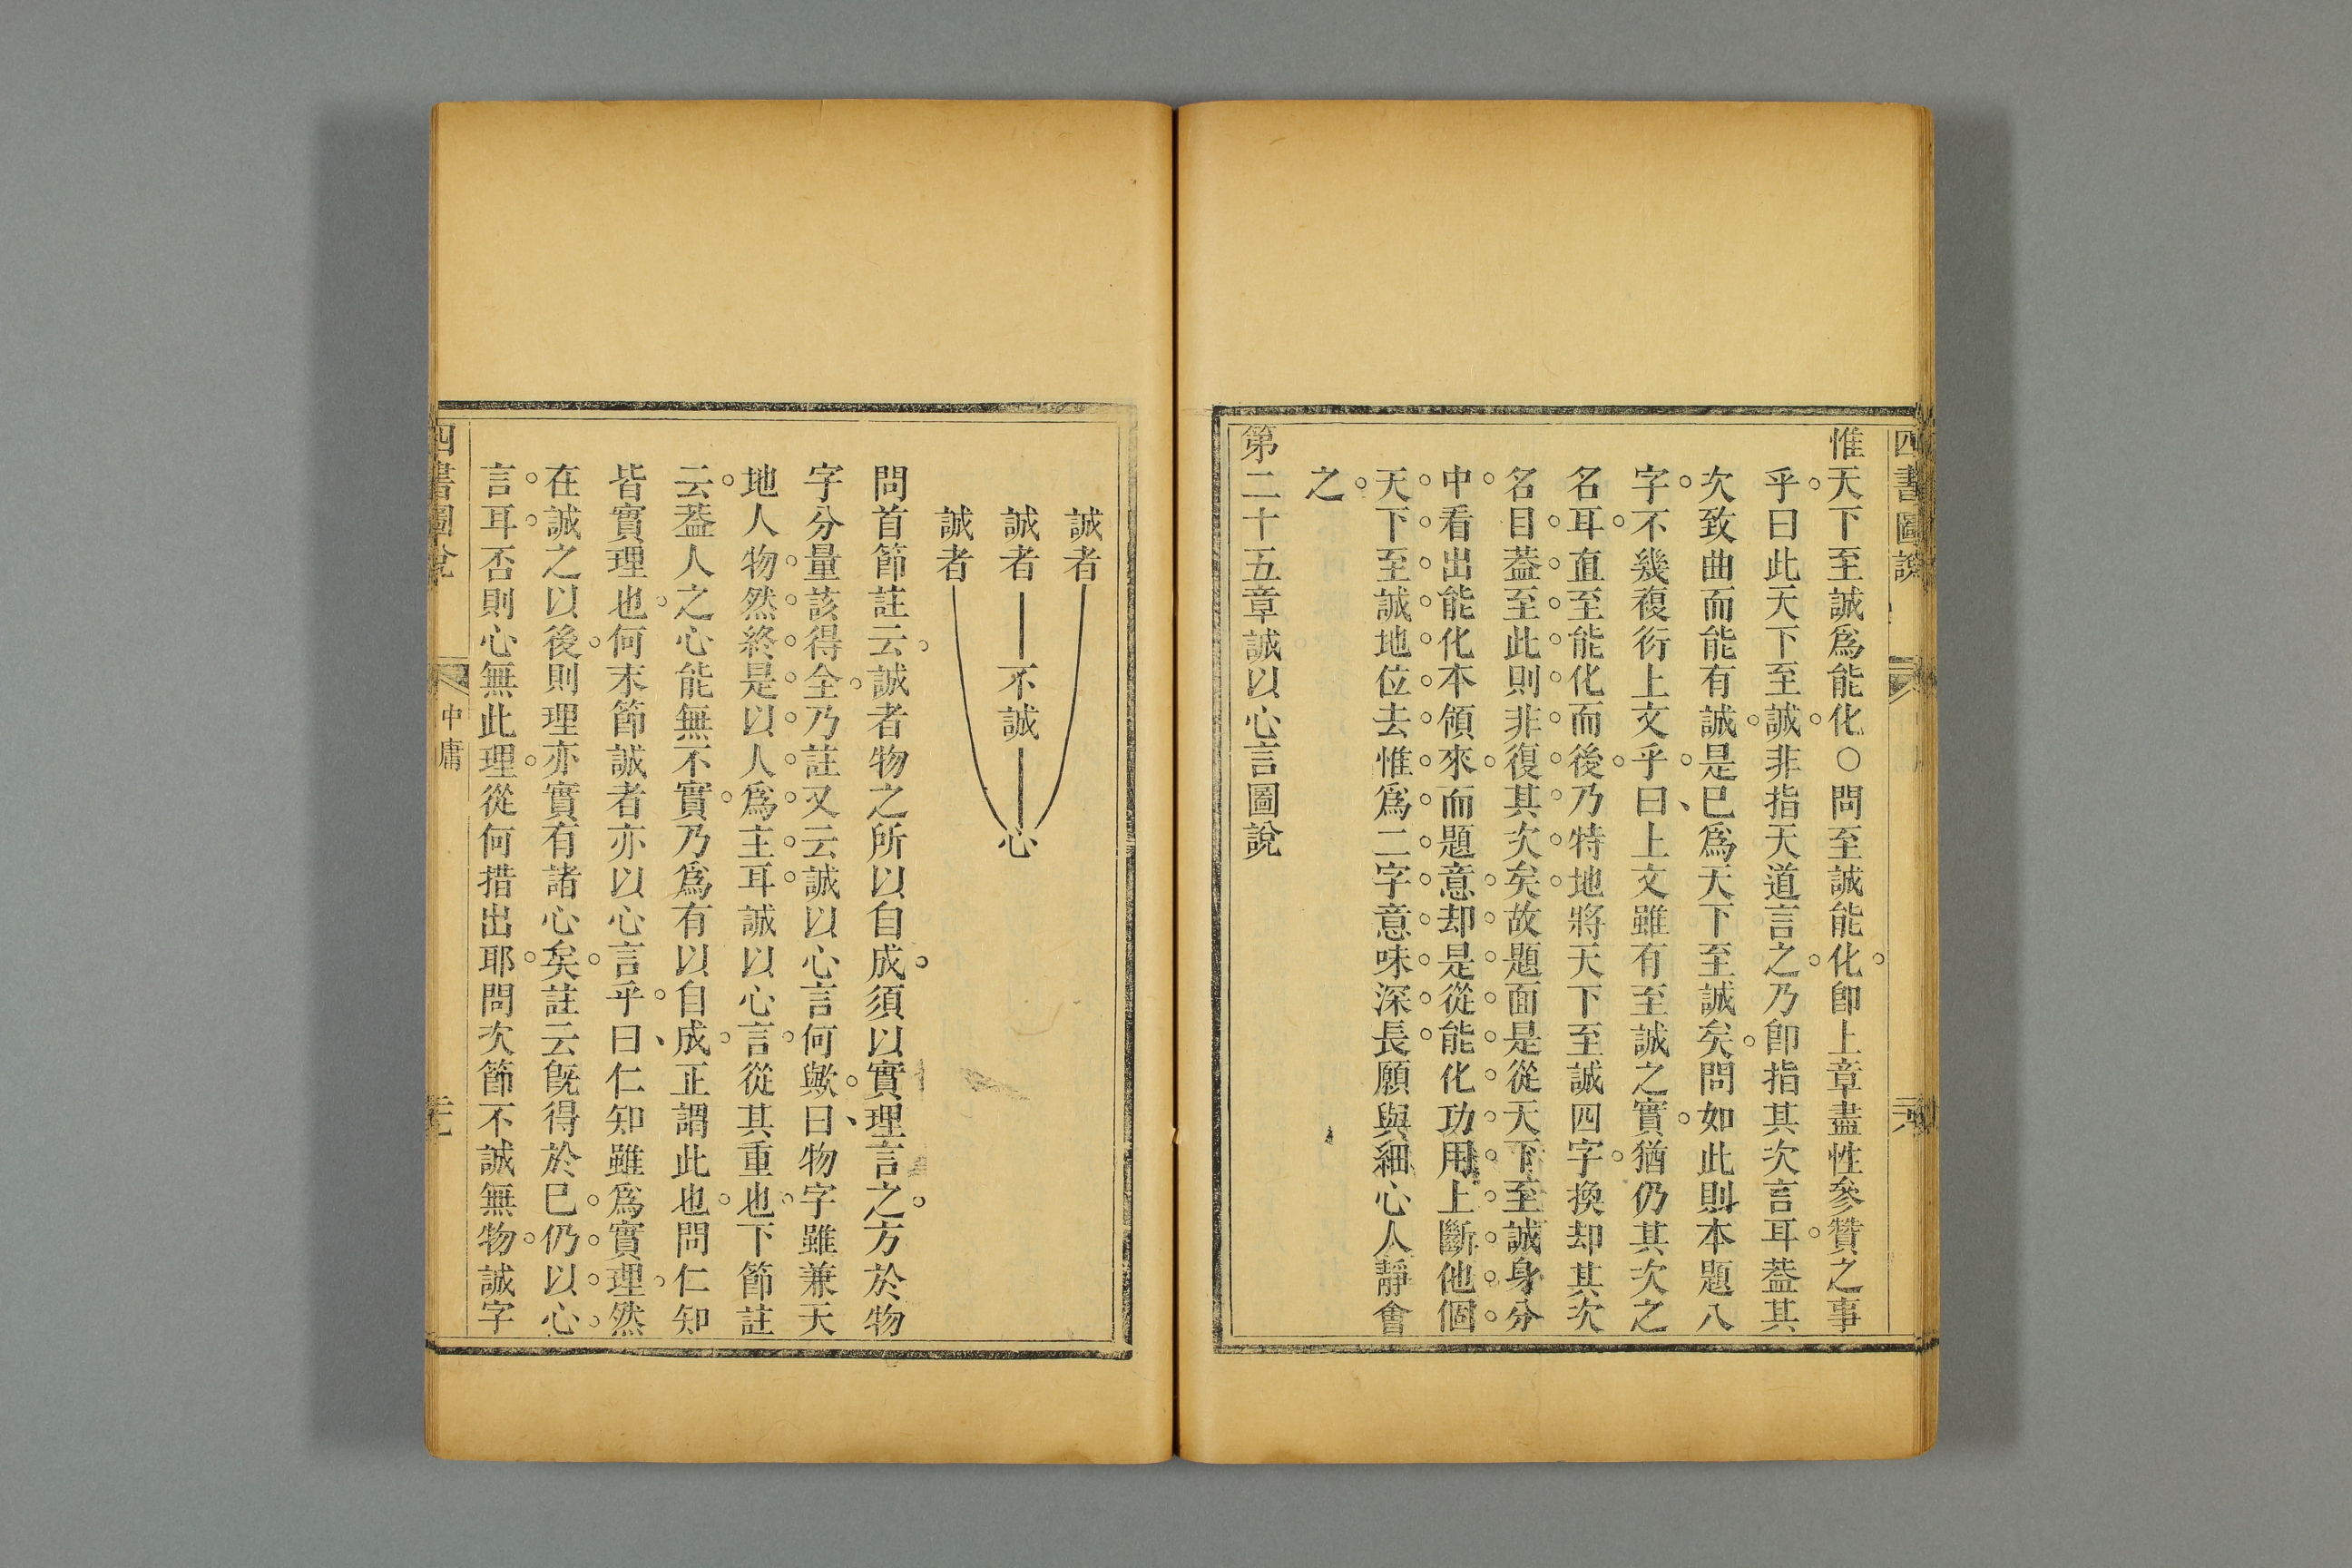 四書圖說
惟天下至誠爲能化○問至誠能化卽上章盡性參贊之事
乎曰此天下至誠非指天道言之乃卽指其次言耳葢其
次致曲而能有誠是已爲天下至誠矣問如此則本題八
字不幾複衍上文乎曰上文雖有至誠之實猶仍其次之
名耳直至能化而後乃特地將天下至誠四字換却其次
名目葢至此則非復其次矣故題面是從天下至誠身分
中看出能化本領來而題意却是從能化功用上斷他個
天下至誠地位去惟爲二字意味深長願與細心人靜會
之
第二十五章誠以心言圖說
誠者
誠者 不誠 心
誠者
問首節註云誠者物之所以自成須以實理言之方於物
字分量該得全乃註又云誠以心言何歟曰物字雖兼天
地人物然終是以人爲主耳誠以心言從其重也下節註
云葢人之心能無不實乃爲有以自成正謂此也問仁知
皆實理也何末節誠者亦以心言乎曰仁知雖爲實理然
在誠之以後則理亦實有諸心矣註云旣得於已仍以心
言耳否則心無此理從何措出耶問次節不誠無物誠字
四書圖說 中庸